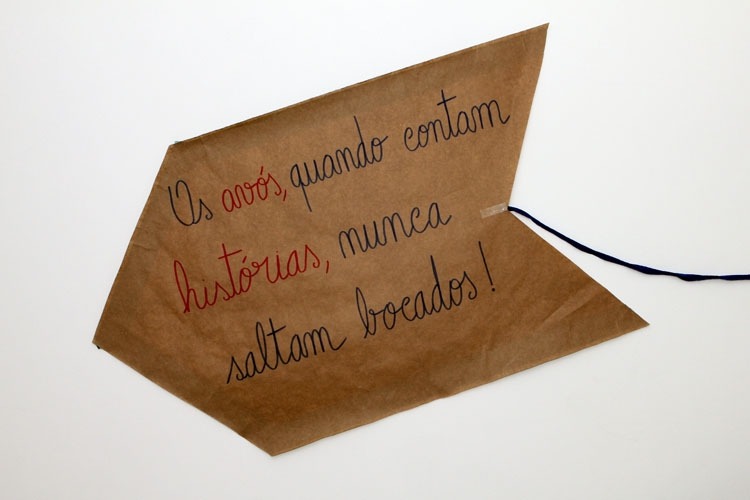 Os avós, quando contam
histórias, nunca
saltam bocados!